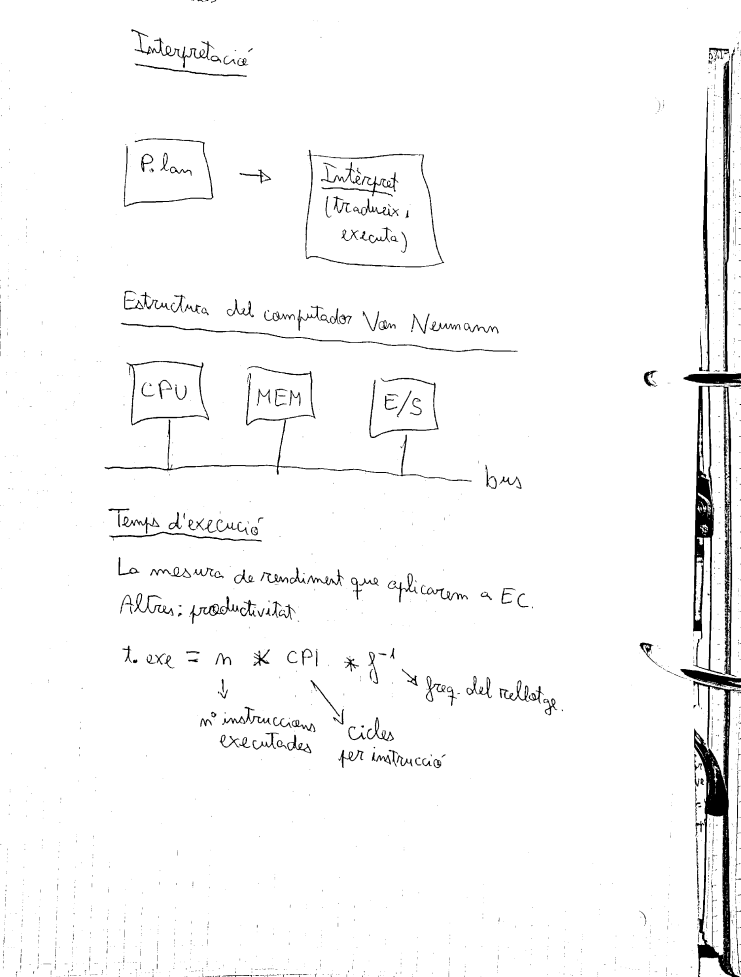 Interpretació
P. lan →
Intèrpret
(tradueix i
executa)
Estructura del computador Von Neumann
CPU MEM E/S
bus
Temps d'execució
La mesura de rendiment que aplicarem a EC.
Altres: productivitat.
t. exe = n * CPI * f⁻¹ → freq. del rellotge.
nº instruccions
executades
cicles
per instrucció